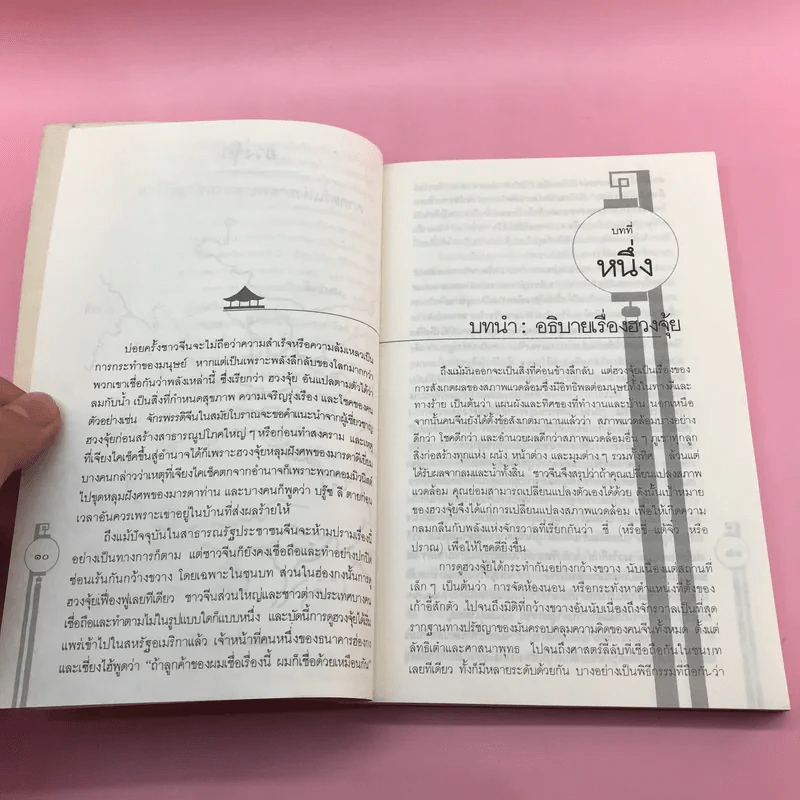 บ่อยครั้งชาวจีนจะไม่ถือว่าความสำเร็จหรือความล้มเหลวเป็น
การกระทำของมนุษย์ หากแต่เป็นเพราะพลังลึกลับของโลกมากกว่า
พวกเขาเชื่อกันว่าพลังเหล่านี้ ซึ่งเรียกว่า ฮวงจุ้ย อันแปลตามตัวได้ว่า
ลมกับน้ำ เป็นสิ่งที่กำหนดสุขภาพ ความเจริญรุ่งเรือง และโชคของคน
ตัวอย่างเช่น จักรพรรดิจีนในสมัยโบราณจะขอคำแนะนำจากผู้เชี่ยวชาญ
ฮวงจุ้ยก่อนสร้างสาธารณูปโภคใหญ่ ๆ หรือก่อนทำสงคราม และเหตุ
ที่เจียงไคเช็คขึ้นสู่อำนาจได้ก็เพราะฮวงจุ้ยหลุมฝังศพของมารดาดีเยี่ยม
บางคนกล่าวว่าเหตุที่เจียงไคเช็คตกจากอำนาจก็เพราะพวกคอมมิวนิสต์
ไปขุดหลุมฝังศพของมารดาท่าน และบางคนก็พูดว่า บรู๊ซ ลี ตายก่อน
เวลาอันควรเพราะเขาอยู่ในบ้านที่ส่งผลร้ายให้
ถึงแม้ปัจจุบันในสาธารณรัฐประชาชนจีนจะห้ามปรามเรื่องนี้
อย่างเป็นทางการก็ตาม แต่ชาวจีนก็ยังคงเชื่อถือและทำอย่างปกปิด
ซ่อนเร้นกันกว้างขวาง โดยเฉพาะในชนบท ส่วนในฮ่องกงนั้นการดู
ฮวงจุ้ยเฟื่องฟูเลยทีเดียว ชาวจีนส่วนใหญ่และชาวต่างประเทศบางคน
เชื่อถือและทำตามไม่ในรูปแบบใดก็แบบหนึ่ง และบัดนี้การดูฮวงจุ้ยได้เริ่ม
แพร่เข้าไปในสหรัฐอเมริกาแล้ว เจ้าหน้าที่คนหนึ่งของธนาคารฮ่องกง
และเซี่ยงไฮ้พูดว่า “ถ้าลูกค้าของผมเชื่อเรื่องนี้ ผมก็เชื่อด้วยเหมือนกัน”
๑๐
บทที่
หนึ่ง
บทนำ : อธิบายเรื่องฮวงจุ้ย
ถึงแม้มันออกจะเป็นสิ่งที่ค่อนข้างลึกลับ แต่ฮวงจุ้ยเป็นเรื่องของ
การสังเกตผลของสภาพแวดล้อมซึ่งมีอิทธิพลต่อมนุษย์ทั้งในทางดีและ
ทางร้าย เป็นต้นว่า แผนผังและทิศของที่ทำงานและบ้าน นอกเหนือ
จากนั้นคนจีนยังได้ตั้งข้อสังเกตมานานแล้วว่า สภาพแวดล้อมบางอย่าง
ดีกว่า โชคดีกว่า และอำนวยผลดีกว่าสภาพแวดล้อมอื่น ๆ ภูเขาทุกลูก
สิ่งก่อสร้างทุกแห่ง ผนัง หน้าต่าง และมุมต่าง ๆ รวมทั้งทิศ ล้วนแต่
ได้รับผลจากลมและน้ำทั้งสิ้น ชาวจีนจึงสรุปว่าถ้าคุณเปลี่ยนแปลงสภาพ
แวดล้อม คุณย่อมสามารถเปลี่ยนแปลงตัวเองได้ด้วย ดังนั้นเป้าหมาย
ของฮวงจุ้ยจึงได้แก่การเปลี่ยนแปลงสภาพแวดล้อม เพื่อให้เกิดความ
กลมกลืนกับพลังแห่งจักรวาลที่เรียกกันว่า ชี่ (หรือชี้ แต้จิ๋ว หรือ
ปราณ) เพื่อให้โชคดียิ่งขึ้น
การดูฮวงจุ้ยได้กระทำกันอย่างกว้างขวาง นับเนื่องแต่สถานที่
เล็กๆ เป็นต้นว่า การจัดห้องนอน หรือกระทั่งหาตำแหน่งที่ตั้งของ
เก้าอี้สักตัว ไปจนถึงมิติที่กว้างขวางอันนับเนื่องถึงจักรวาลเป็นที่สุด
รากฐานทางปรัชญาของมันครอบคลุมความคิดของคนจีนทั้งหมด ตั้งแต่
ลัทธิเต๋าและศาสนาพุทธ ไปจนถึงศาสตร์ลี้ลับที่เชื่อถือกันในชนบท
เลยทีเดียว ทั้งก็มีหลายระดับด้วยกัน บางอย่างเป็นพิธีกรรมที่ถือกันว่า